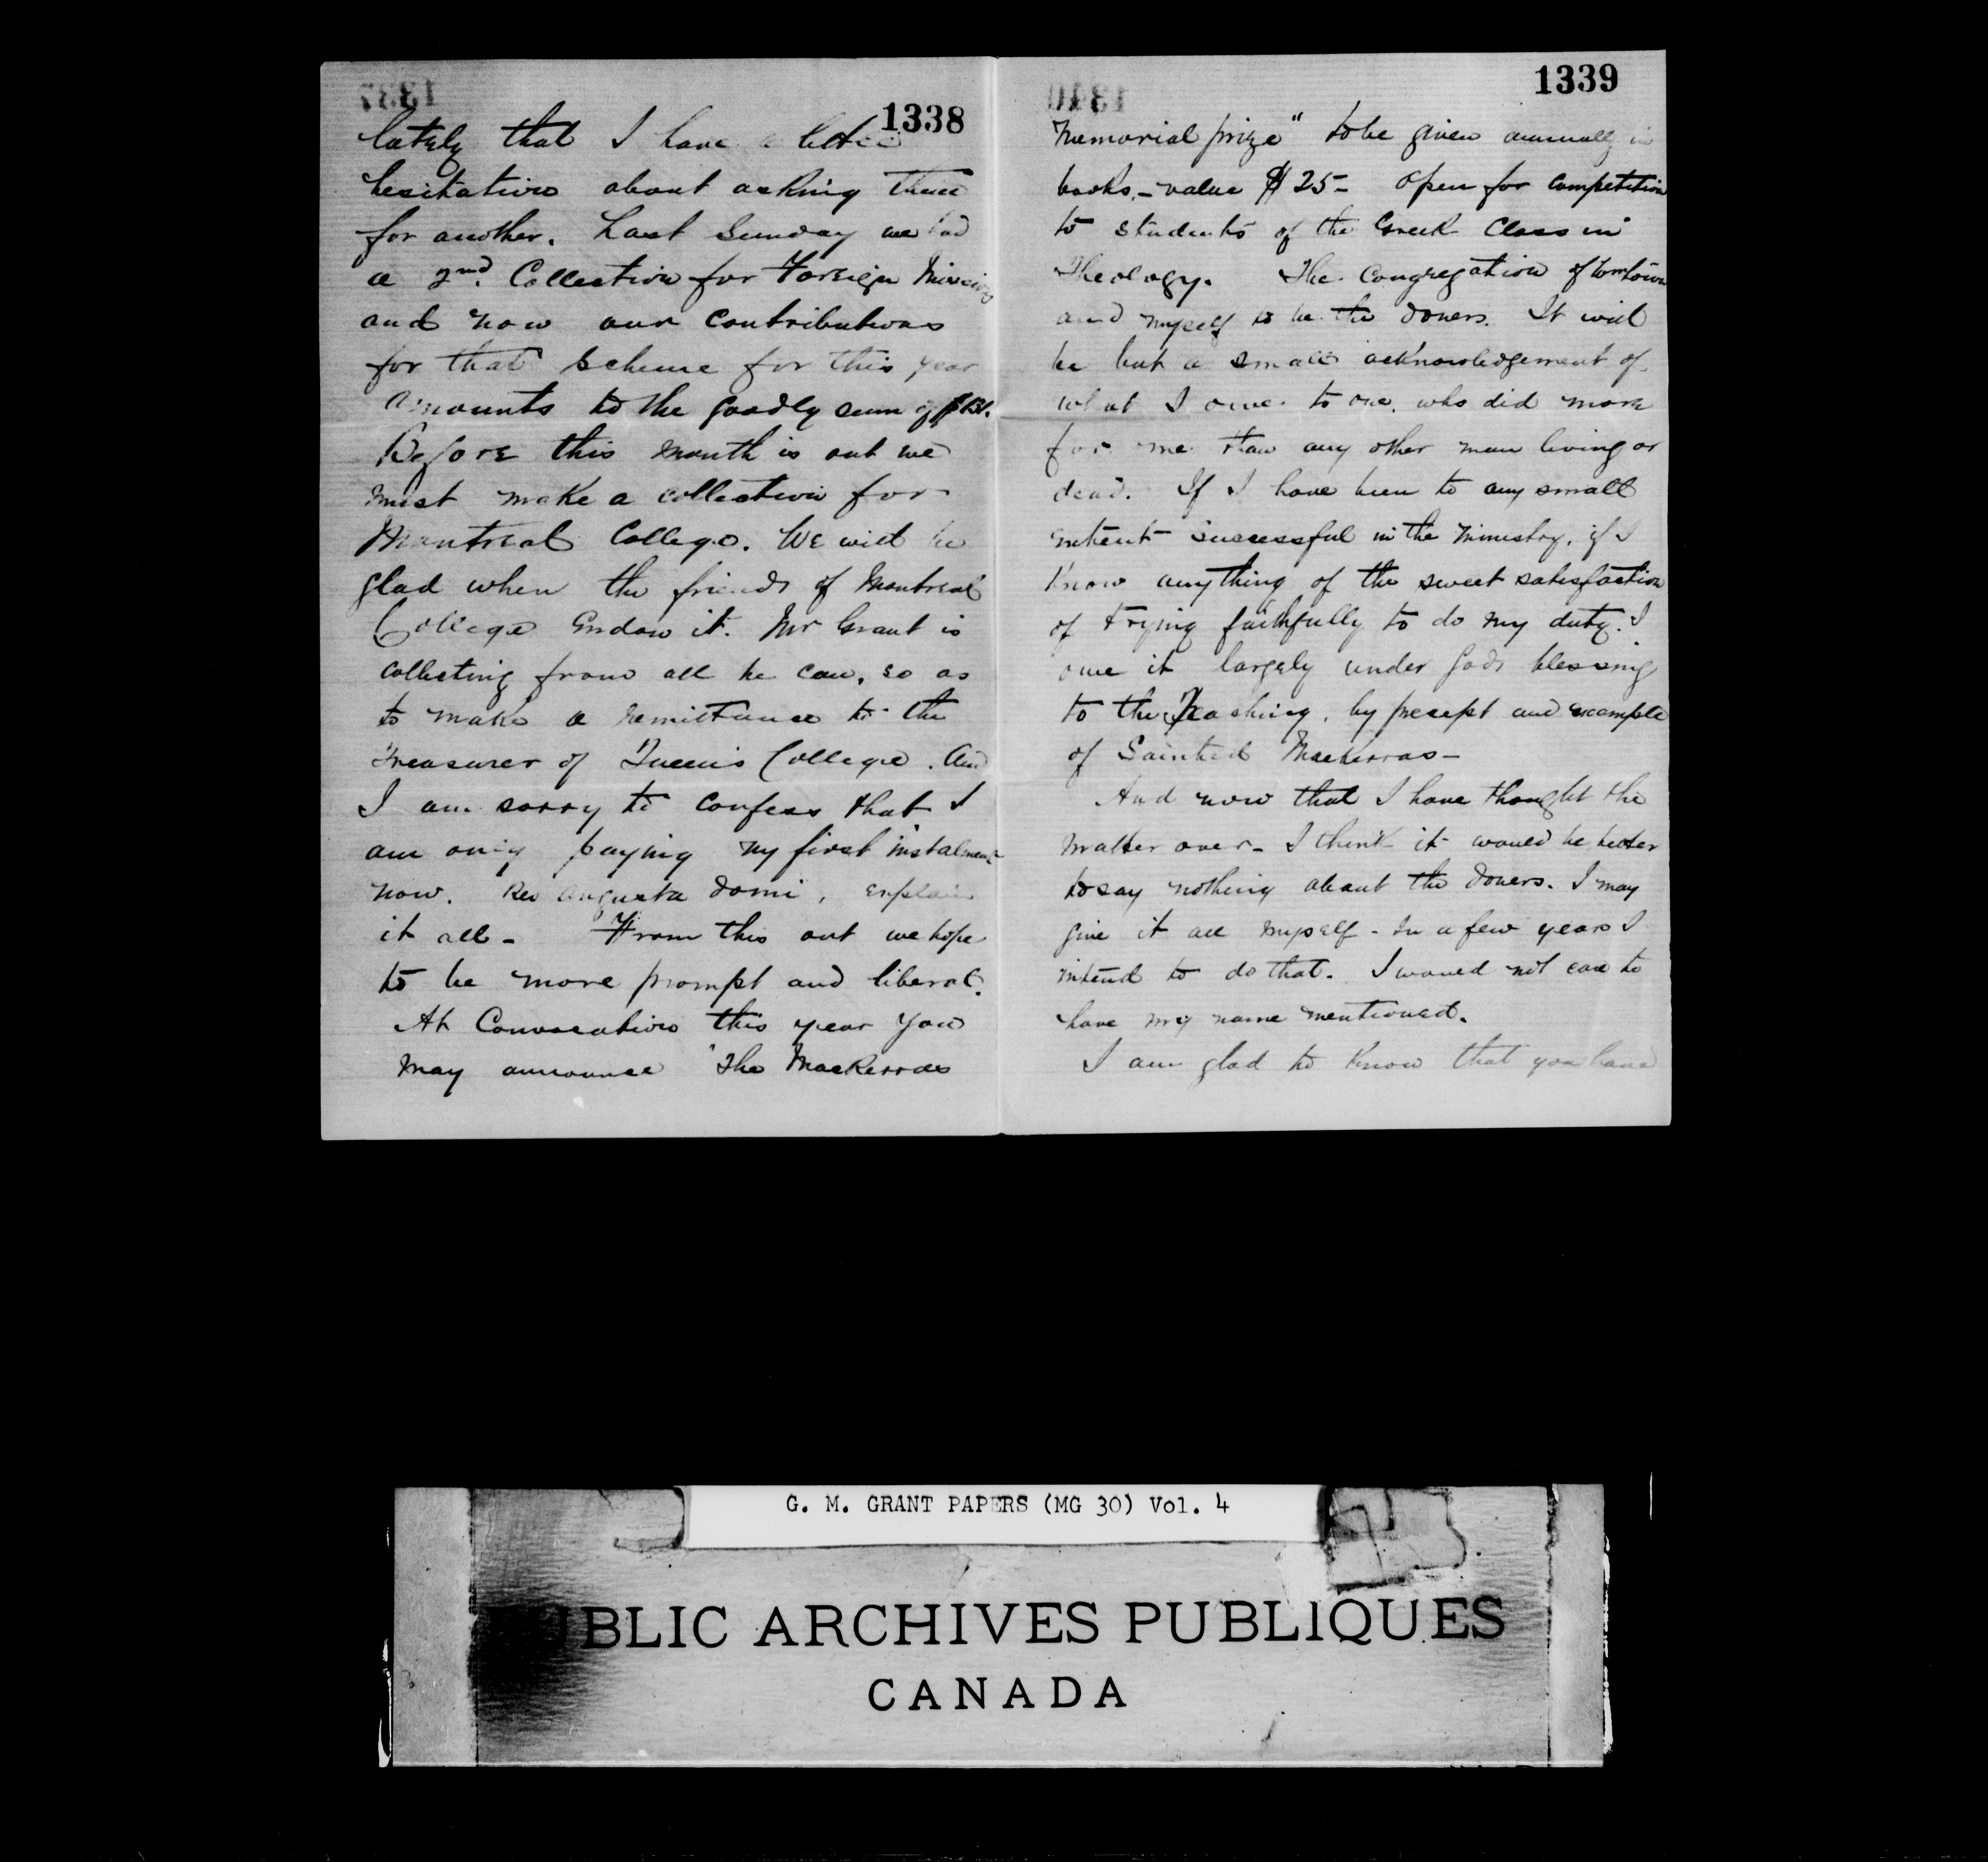 1338
lately that I have a little
hesitation about asking them
for another. Last Sunday we had
a 2nd. Collection for Foreign Missions
and now our contributions
for that scheme for this year
amounts to the goodly sum of $151.
Before this month is out we
must make a collection for
Montreal College. We will be
glad when the friends of Montreal
College Endow it. Mr Grant is
collecting from all he can, so as
to make a remittance to the
Treasurer of Queen's College. And
I am sorry to confess that I
am only paying my first instalment
now. Res angusta domi, explain
it all - From this out we hope
to be more prompt and liberal.
At Convocation this year you
may announce "The Mackerras
1339
Memorial prize" to be given annually in
books, - value $25 - Open for competition
to students of the Greek Class in
Theology. The Congregation of
and myself to be the doners. It will
be but a small acknowledgement of
what I owe to one, who did more
for me than any other man living or
dead. If I have been to any small
extent successful in the ministry, if I
know anything of the sweet satisfaction
of trying faithfully to do my duty. I
owe it largely under Gods blessing
to the Teaching, by precept and example
of Sainted Mackerras -
And now that I have thought the
matter over - I think it would be better
to say nothing about the doners. I may
give it all myself - In a few years I
intend to do that. I would not care to
have my name mentioned.
I am glad to know that you have
G. M. GRANT PAPERS (MG 30) Vol. 4
PUBLIC ARCHIVES PUBLIQUES
CANADA